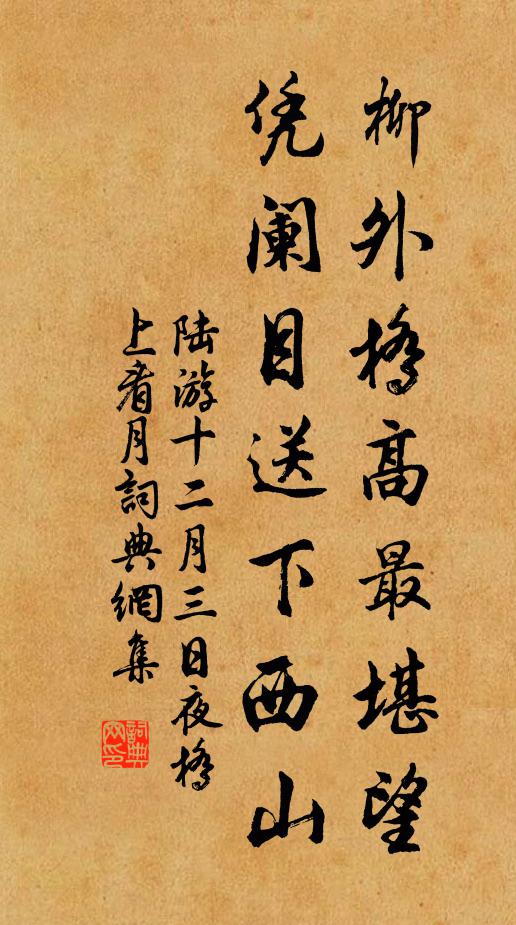 柳外橋高最堪望
凭阑目送下西山
陆游十二月三日夜橋
上看月詞典網集
詞典網印